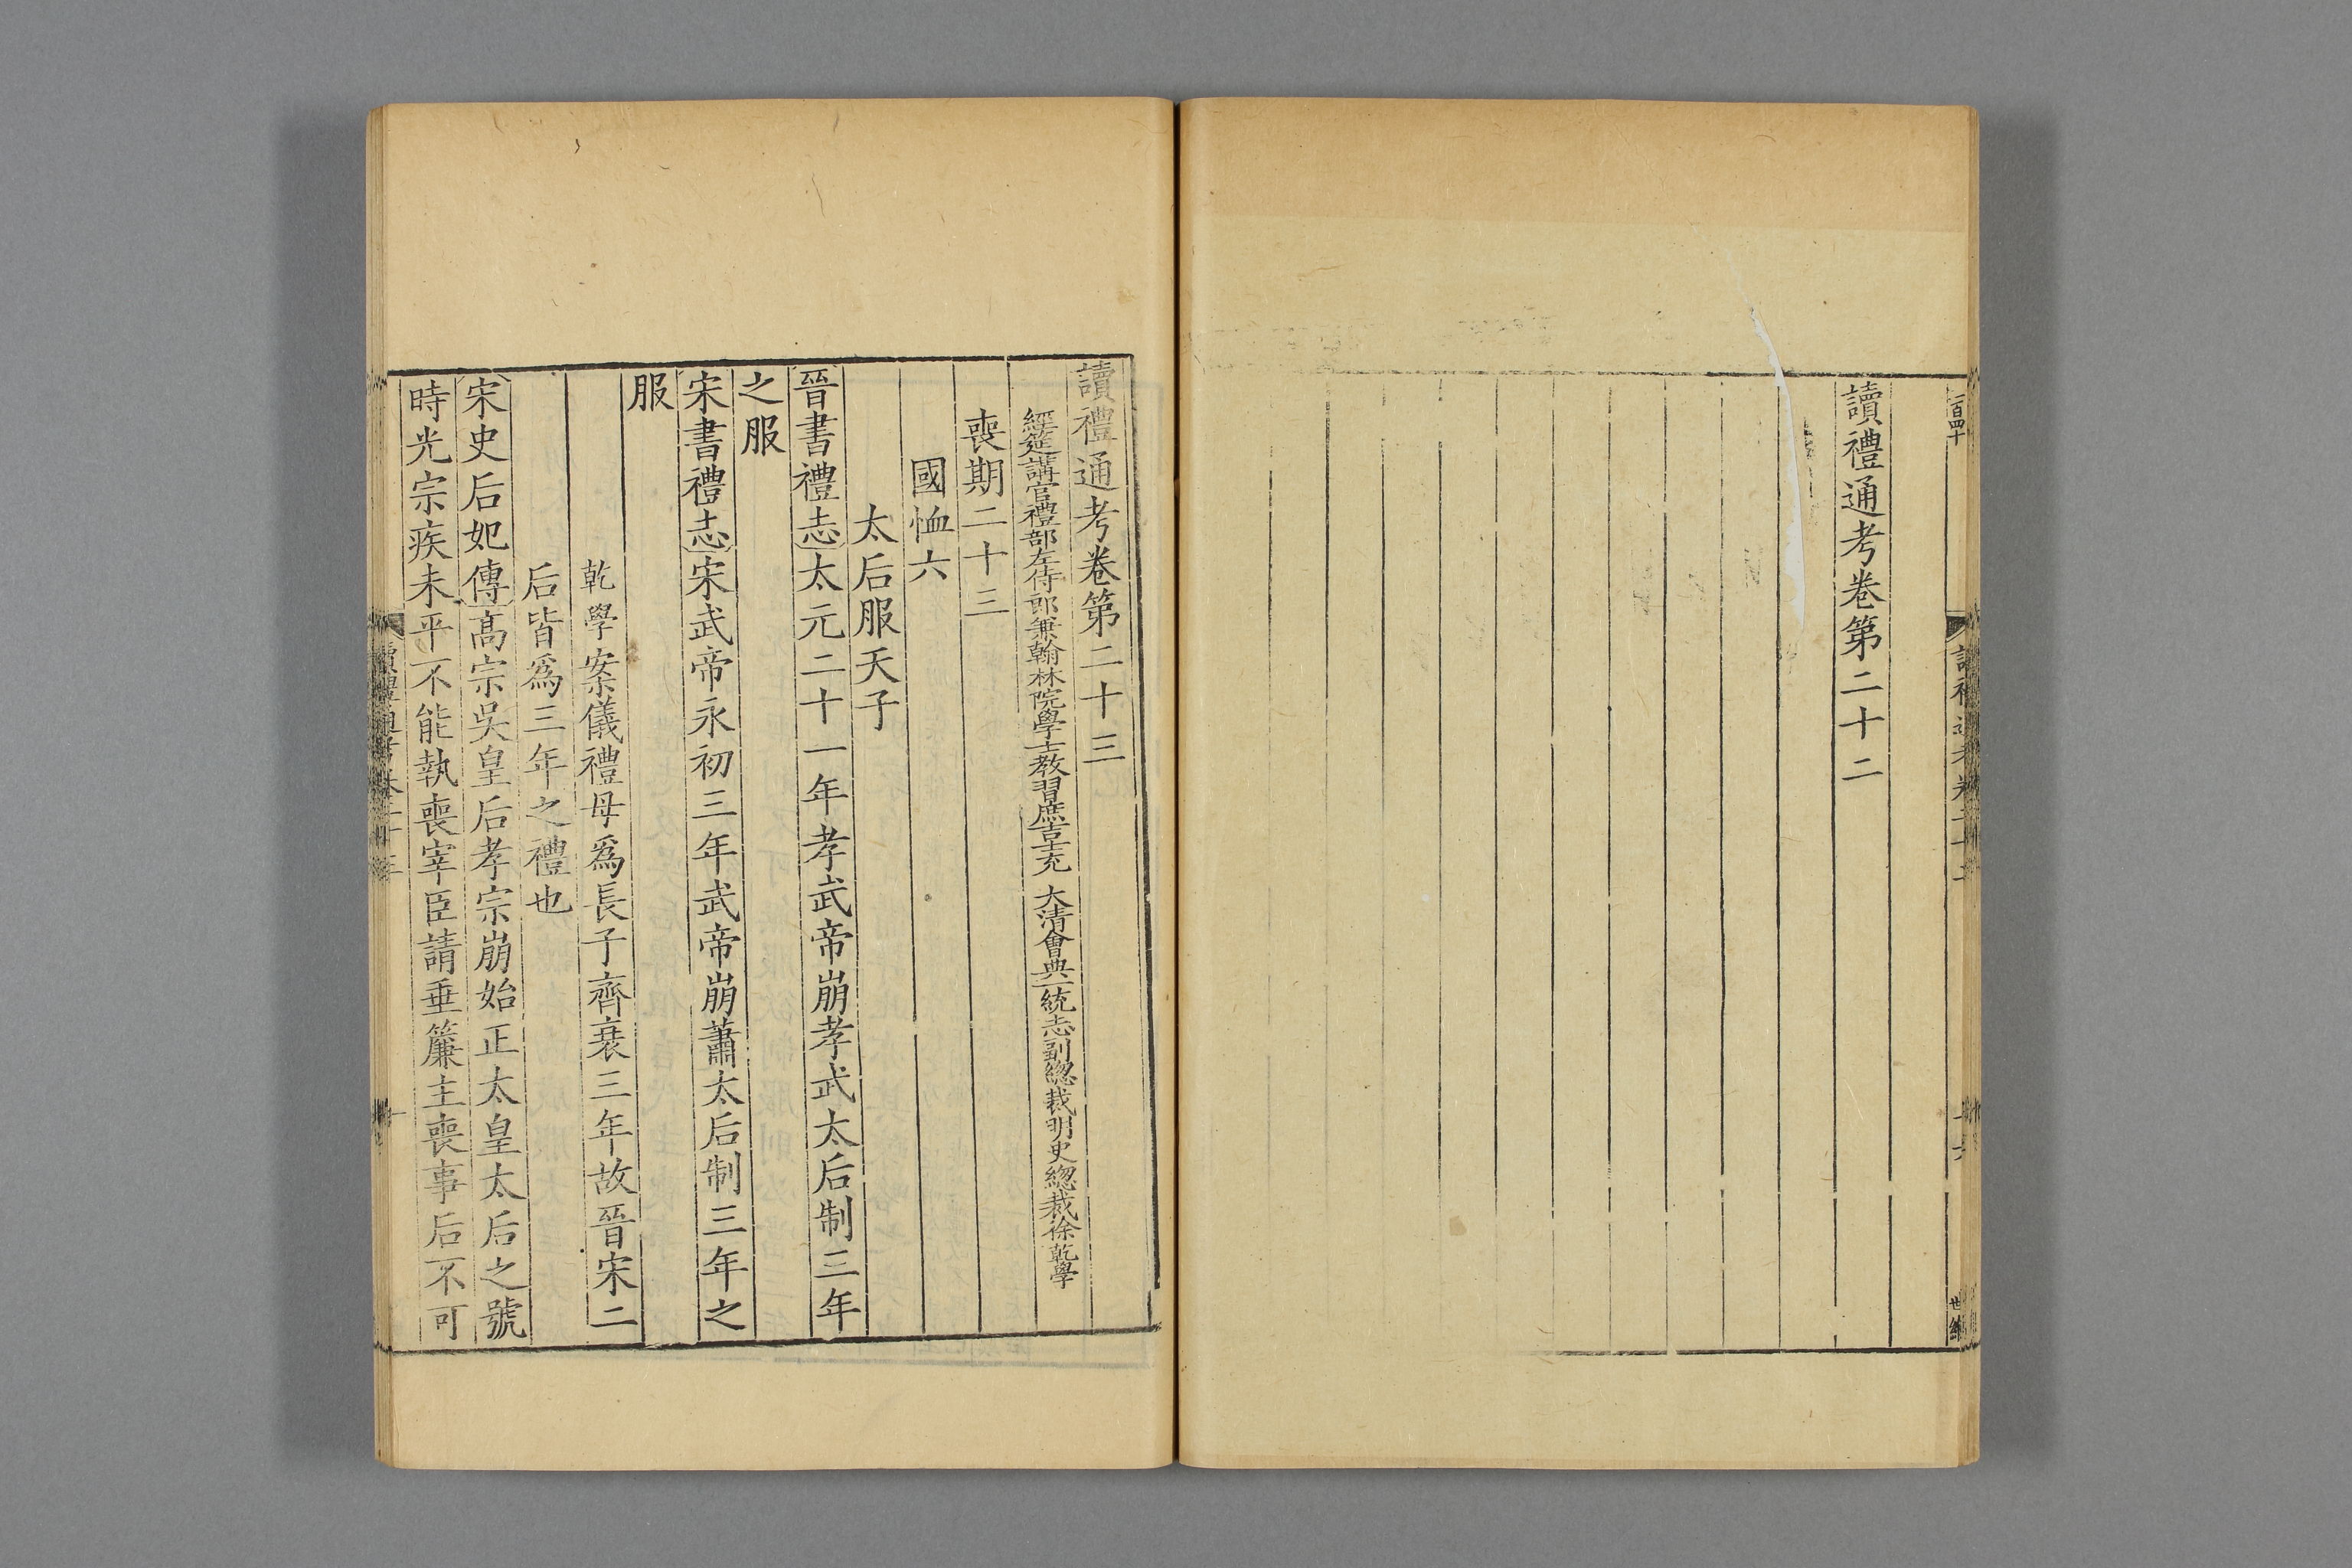 一百四十
讀禮通考卷二十二
十六
讀禮通考卷第二十二
讀禮通考卷第二十三
經筵講官禮部左侍郎兼翰林院學士教習庶吉士充 大清會典一統志副總裁明史總裁徐乾學
喪期二十三
國恤六
太后服天子
晉書禮志太元二十一年孝武帝崩孝武太后制三年
之服
宋書禮志宋武帝永初三年武帝崩蕭太后制三年之
服
乾學案儀禮母爲長子齊衰三年故晉宋二
后皆爲三年之禮也
宋史后妃傳高宗吳皇后孝宗崩始正太皇太后之號
時光宗疾未平不能執喪宰臣請垂簾主喪事后不可
讀禮通考卷二十三
一